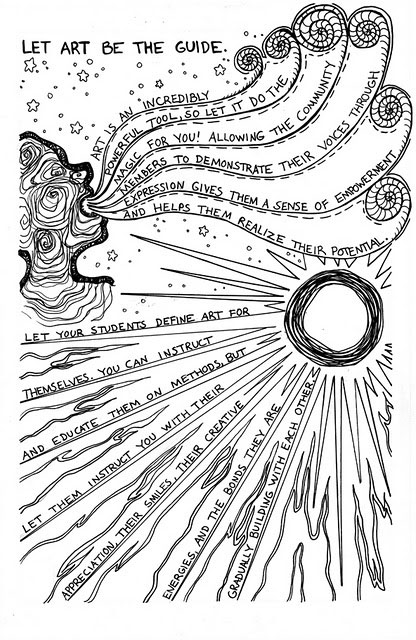 LET ART BE THE GUIDE.
ART IS AN INCREDIBLY
POWERFUL TOOL, SO LET IT DO THE
MAGIC FOR YOU! ALLOWING THE COMMUNITY
MEMBERS TO DEMONSTRATE THEIR VOICES THROUGH
EXPRESSION GIVES THEM A SENSE OF EMPOWERMENT
AND HELPS THEM REALIZE THEIR POTENTIAL.
LET YOUR STUDENTS DEFINE ART FOR
THEMSELVES. YOU CAN INSTRUCT
AND EDUCATE THEM ON METHODS, BUT
LET THEM INSTRUCT YOU WITH THEIR
APPRECIATION, THEIR SMILES, THEIR CREATIVE
ENERGIES, AND THE BONDS THEY ARE
GRADUALLY BUILDING WITH EACH OTHER.